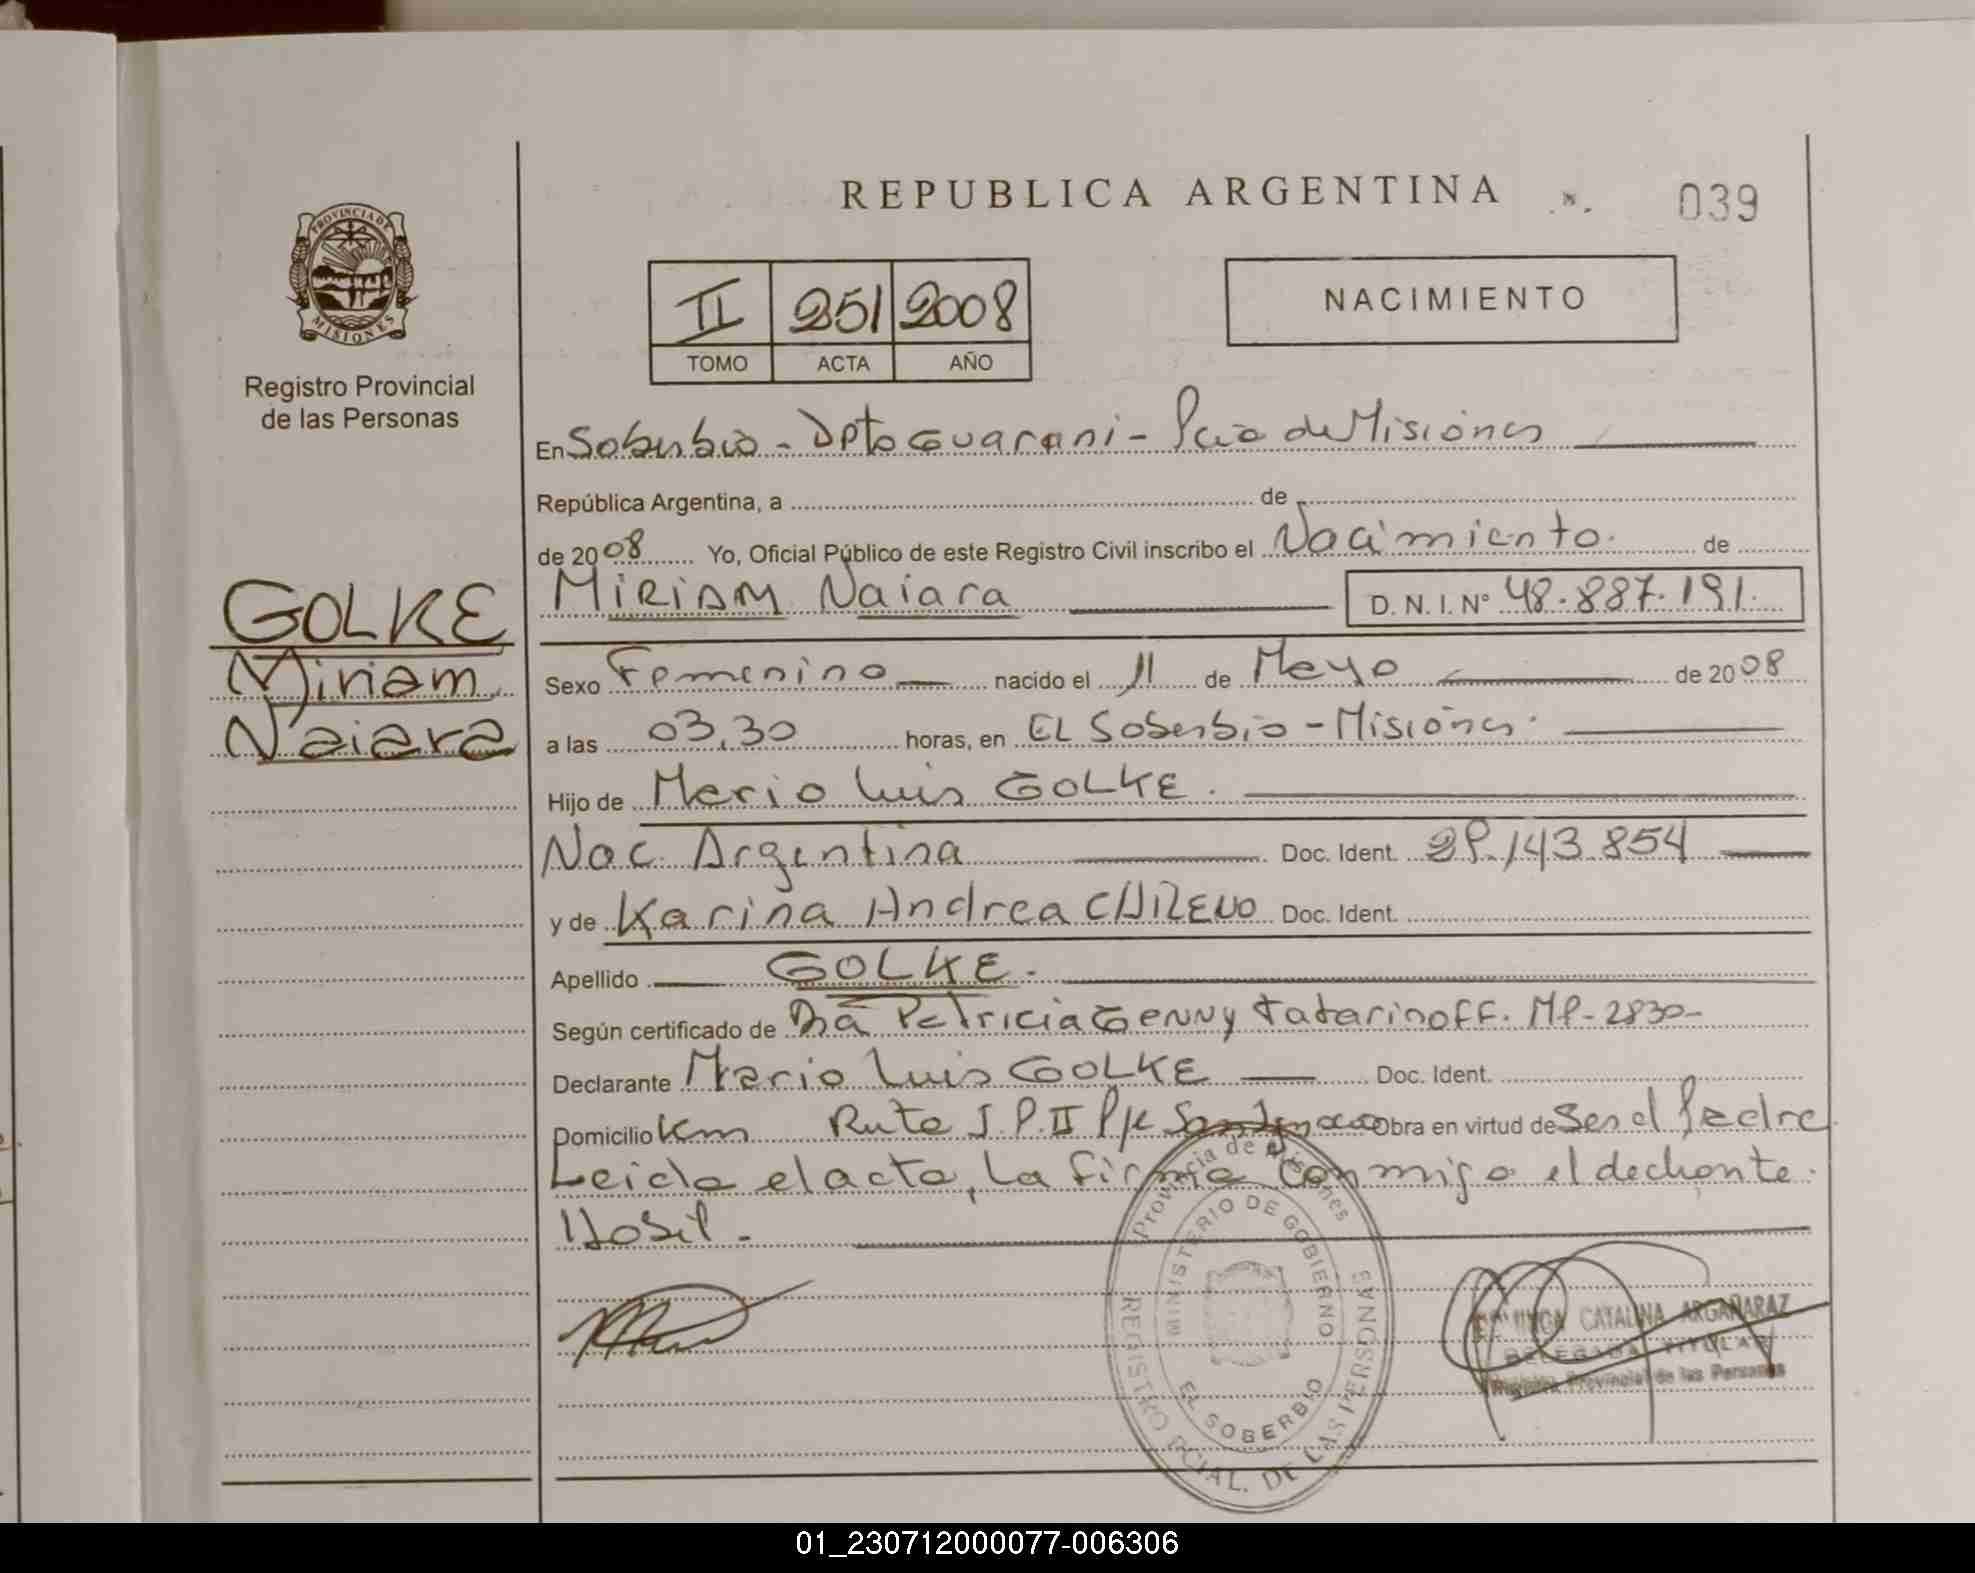 REPUBLICA ARGENTINA
039
PROVINCIA DE
MISIONES
Registro Provincial
de las Personas
II 251 2008
TOMO ACTA AÑO
NACIMIENTO
En Soberbio - Dpto Guarani - Pcia de Misiones
República Argentina, a de
de 2008 Yo, Oficial Público de este Registro Civil inscribo el Nacimiento. de
MIRIAM Naiara D.N.I. Nº 48.887.191.
GOLKE
Miriam
Naiara
Sexo Femenino nacido el 11 de Mayo de 2008
a las 03,30 horas, en EL Soberbio - Misiones.
Hijo de Mario Luis GOLKE.
Nac. Argentina Doc. Ident. 29.143.854
y de Karina Andrea Doc. Ident.
Apellido GOLKE.
Según certificado de Dra Patricia Genny Tatarinoff. MP-2830-
Declarante Mario Luis GOLKE Doc. Ident.
Domicilio Km Ruta J.P.II Pje Obra en virtud de Ser el Padre
Leida el acta, La firma conmigo el
Habil.
Provincia de Misiones
MINISTERIO DE GOBIERNO
EL SOBERBIO
REGISTRO PCIAL. DE LAS PERSONAS
CATALINA ARGAÑARAZ
DELEGADA TITULAR
Registro Provincial de las Personas
01_230712000077-006306